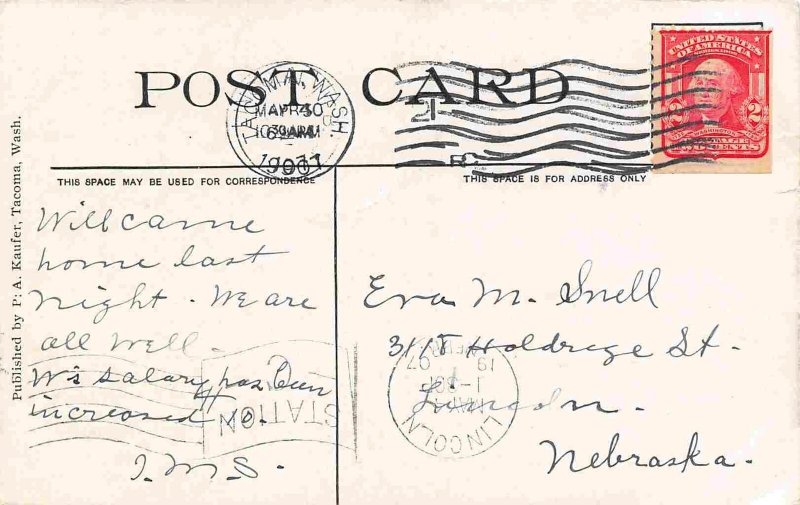 POST CARD
TACOMA, WASH.
1907
UNITED STATES
OF AMERICA
2 2
WASHINGTON
CENTS
THIS SPACE MAY BE USED FOR CORRESPONDENCE
THIS SPACE IS FOR ADDRESS ONLY
Published by P. A. Kaufer, Tacoma, Wash.
Will came
home last
night. We are
all well.
W's salary has been
increased 10.
I.M.S.
Eva M. Snell
Holdrege St.
Lincoln.
Nebraska.
LINCOLN
19 07
STATION